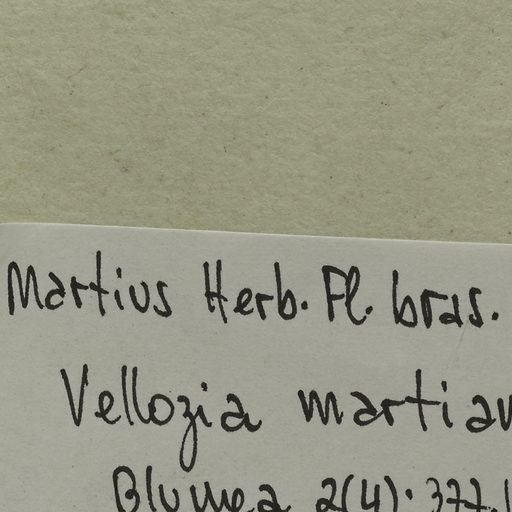 Martius Herb. Fl. bras.
Vellozia martian
Blumea 2(4): 377.